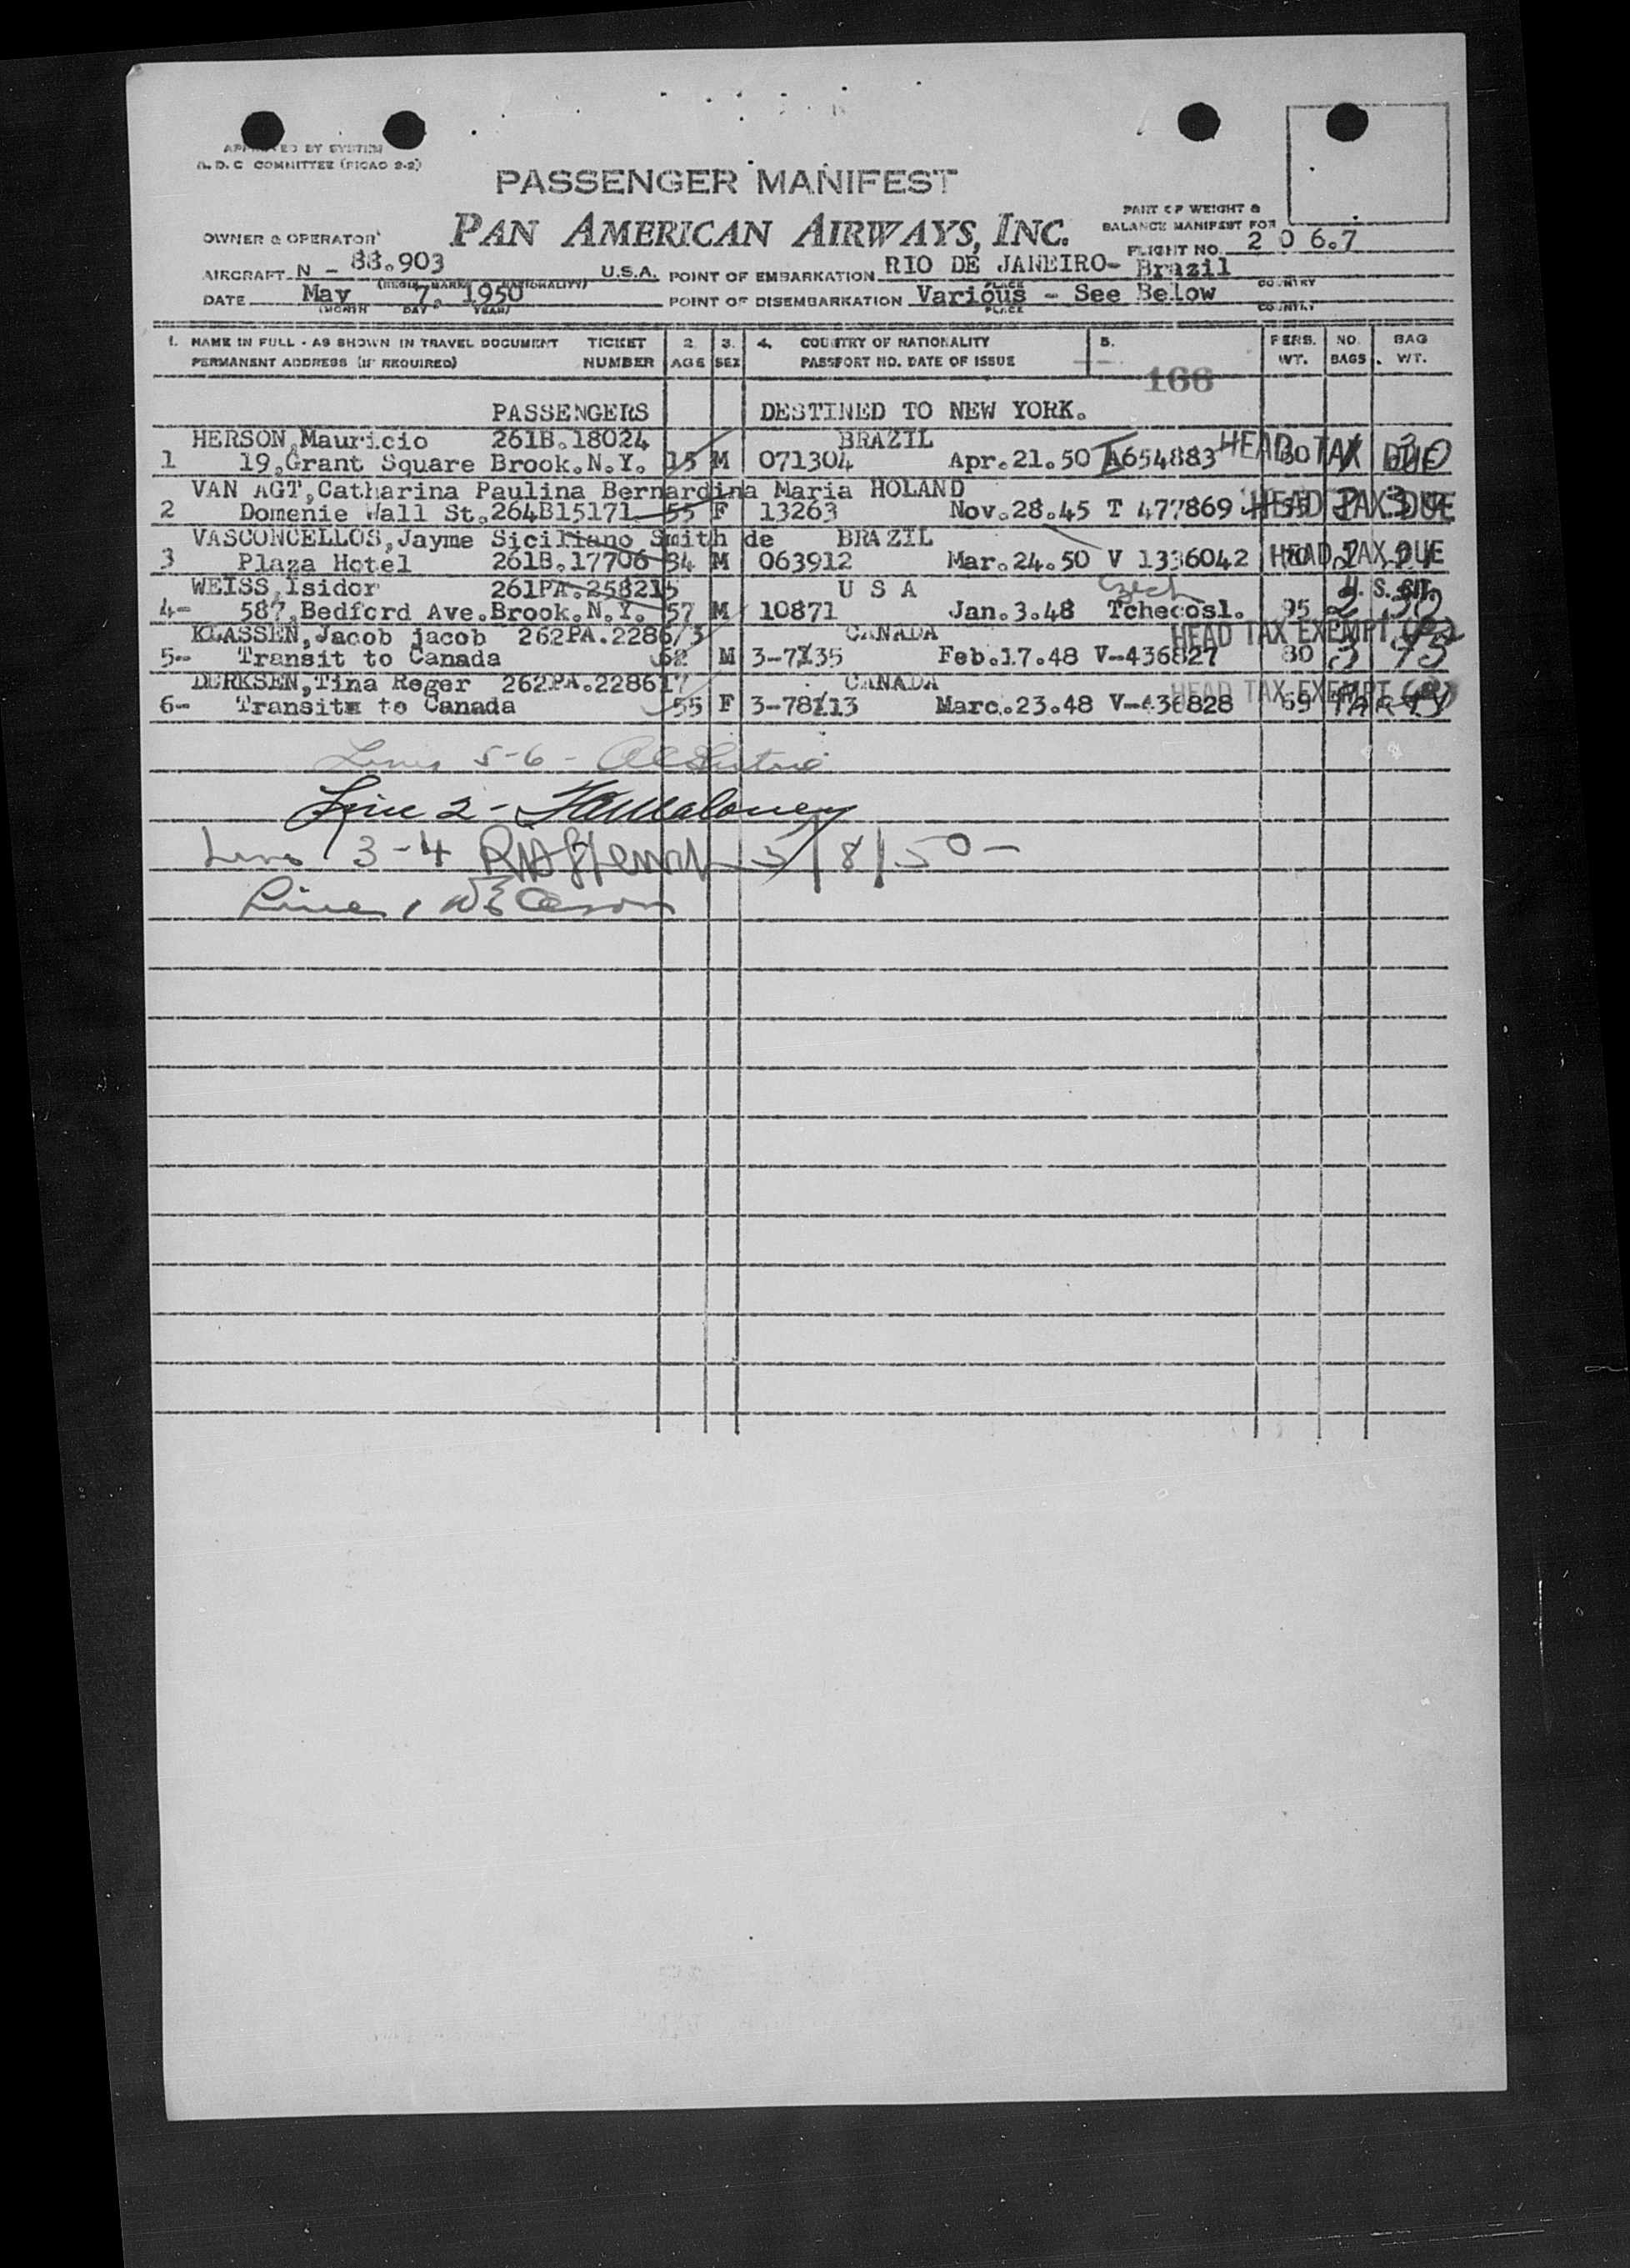 APPROVED BY SYSTEM
A. D. C COMMITTEE (FICAO 2-2)
PASSENGER MANIFEST
PAN AMERICAN AIRWAYS, INC.
PART OF WEIGHT &
BALANCE MANIFEST FOR
OWNER & OPERATOR
FLIGHT NO. 2 0 6.7
AIRCRAFT N - 88.903 U.S.A. POINT OF EMBARKATION RIO DE JANEIRO- Brazil
PLACE COUNTRY
DATE May 7, 1950 POINT OF DISEMBARKATION Various - See Below
(MONTH DAY YEAR) PLACE COUNTRY
1. NAME IN FULL - AS SHOWN IN TRAVEL DOCUMENT TICKET 2. 3. 4. COUNTRY OF NATIONALITY 5. PERS. NO. BAG
PERMANENT ADDRESS (IF REQUIRED) NUMBER AGE SEX PASSPORT NO. DATE OF ISSUE WT. BAGS. WT.
166
PASSENGERS DESTINED TO NEW YORK.
HERSON,Mauricio 261B.18024 BRAZIL
1 19,Grant Square Brook.N.Y. 15 M 071304 Apr.21.50 A654883 HEAD TAX DUE
VAN AGT,Catharina Paulina Bernardina Maria HOLAND
2 Domenie Wall St.264B15171 55 F 13263 Nov.28.45 T 477869 HEAD TAX DUE
VASCONCELLOS,Jayme Siciliano Smith de BRAZIL
3 Plaza Hotel 261B.17706 34 M 063912 Mar.24.50 V 1336042 HEAD TAX DUE
WEISS,Isidor 261PA.258215 U S A Czech U. S. CIT.
4- 587,Bedford Ave.Brook.N.Y. 57 M 10871 Jan.3.48 Tchecosl. 95 2 30
KLASSEN,Jacob jacob 262PA.2286/3 CANADA HEAD TAX EXEMPT
5- Transit to Canada 62 M 3-7135 Feb.17.48 V-436827 80 3 73
DURKSEN,Tina Reger 262PA.228617 CANADA HEAD TAX EXEMPT
6- Transit to Canada 55 F 3-78113 Marc.23.48 V-436828 69
Lines 5-6 -
Line 2 -
Lines 3-4 5/8/50 -
Line 1